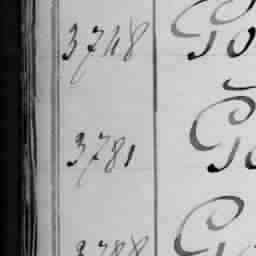 3748 Go
3781 Go
3788 G